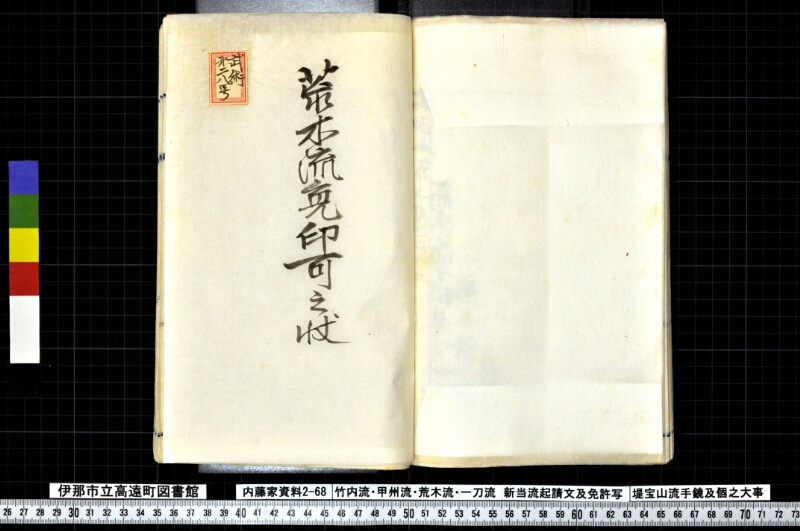 武術
第二八号
荒木流免印可之状
伊那市立高遠町図書館
内藤家資料2-68
竹内流・甲州流・荒木流・一刀流 新当流起請文及免許写
堤宝山流手鏡及個之大事
26 27 28 29 30 31 32 33 34 35 36 37 38 39 40 41 42 43 44 45 46 47 48 49 50 51 52 53 54 55 56 57 58 59 60 61 62 63 64 65 66 67 68 69 70 71 72 73